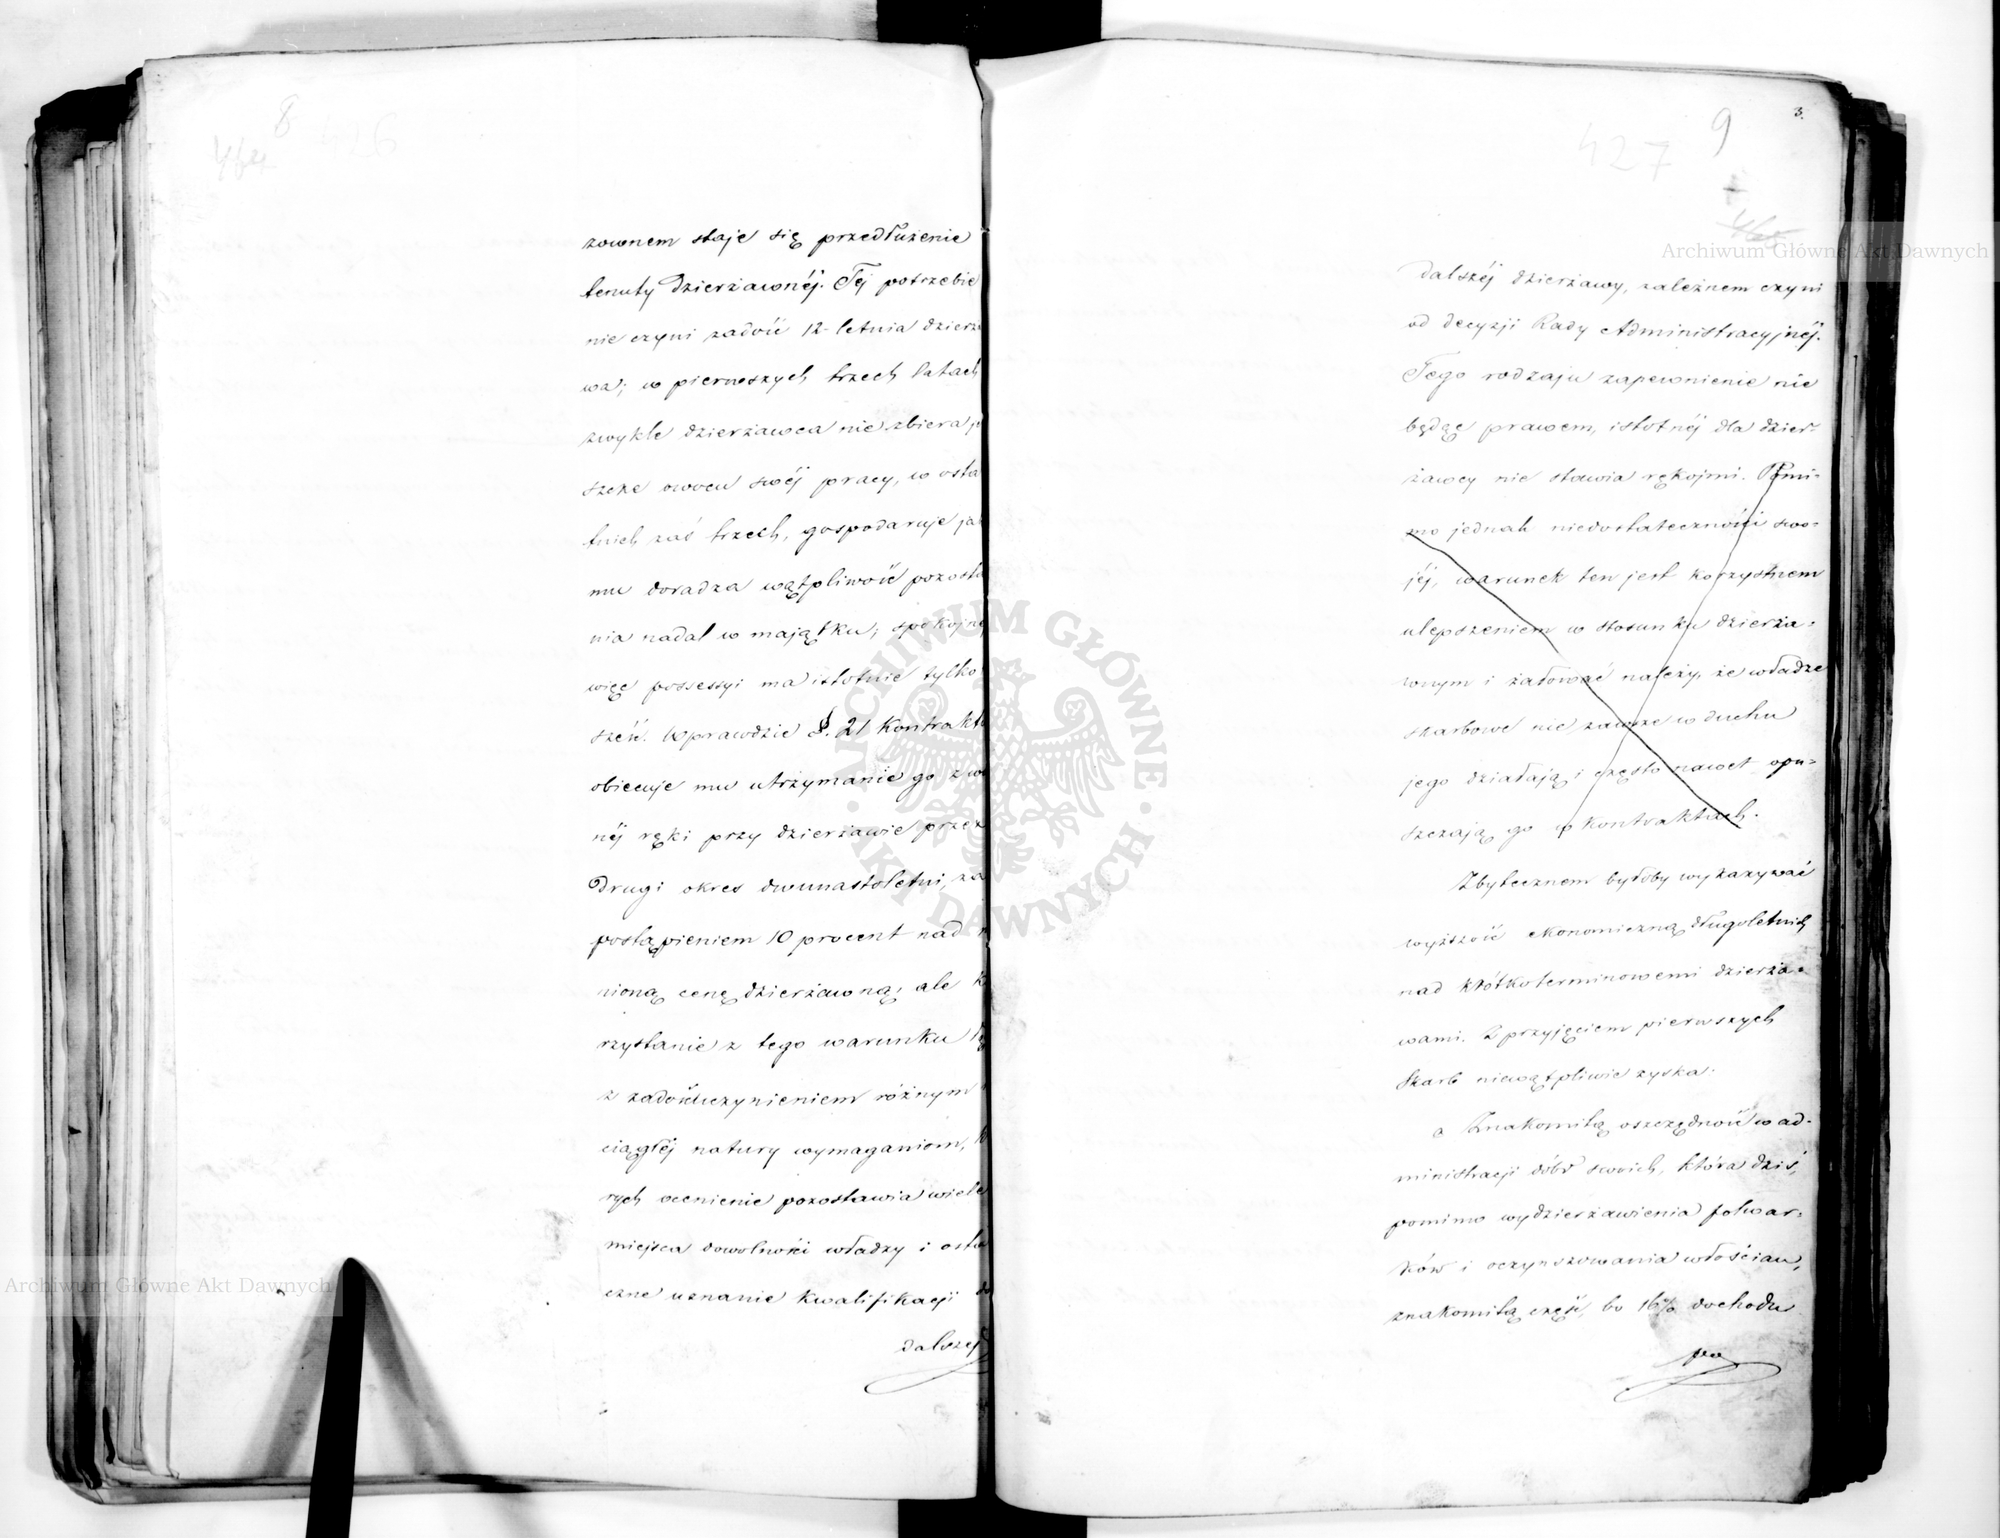 8
464
426
zownem staje się przedłużenie
tenuty dzierżawnéj. Téj potrzebie
nie czyni zadość 12-letnia dzierż
wa; w pierwszych trzech latach
zwykle dzierżawca nie zbiera je
szcze owocu swéj pracy, w osta
tnich zaś trzech, gospodaruje ja
mu doradza wątpliwość pozosta
nia nadal w majątku; spokojnéj
więc possessyi ma istotnie tylko
sześć. Wprawdzie §. 21 Kontraktu
obiecuje mu utrzymanie go z wo
néj ręki przy dzierżawie przez
drugi okres dwunastoletni, za
postąpieniem 10 procent nad
nioną cenę dzierżawną; ale k
rzystanie z tego warunku
z zadośćuczynieniem różnym
ciągłéj natury wymaganiom,
rych ocenienie pozostawia wiele
miejsca dowolności władzy i osta
czne uznanie kwalifikacji do
dalszéj
3.
9
427
465
Archiwum Główne Akt Dawnych
dalszéj dzierżawy, zależnem czyni
od decyzji Rady Administracyjnéj.
Tego rodzaju zapewnienie nie
będąc prawem, istotnéj dla dzier-
żawcy nie stawia rękojmi. Pomi-
mo jednak niedostateczności swo-
jéj, warunek ten jest korzystnem
ulepszeniem w stosunku dzierża-
wnym i żałować należy, że władze
skarbowe nie zawsze w duchu
jego działają i często nawet opu-
szczają go w kontraktach.
Zbytecznem byłoby wykazywać
wyższość ekonomiczną długoletnich
nad krótkoterminowemi dzierża-
wami. Z przyjęciem pierwszych
Skarb niewątpliwie zyska:
a Znakomitą oszczędność w ad-
ministracji dóbr swoich, która dziś,
pomimo wydzierżawienia folwar-
ków i oczynszowania włościan,
znakomitą część, bo 16% dochodu
po
ARCHIWUM GŁÓWNE
AKT DAWNYCH
Archiwum Główne Akt Dawnych